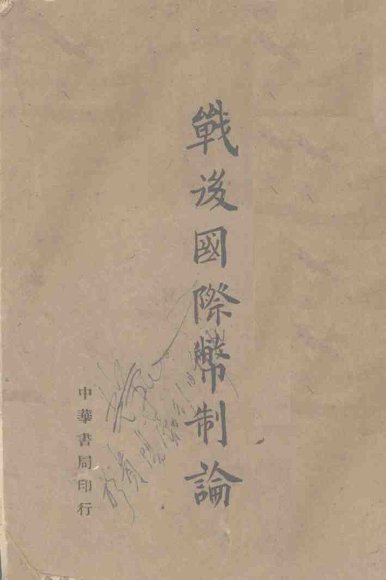 戰後國際幣制論
中華書局印行